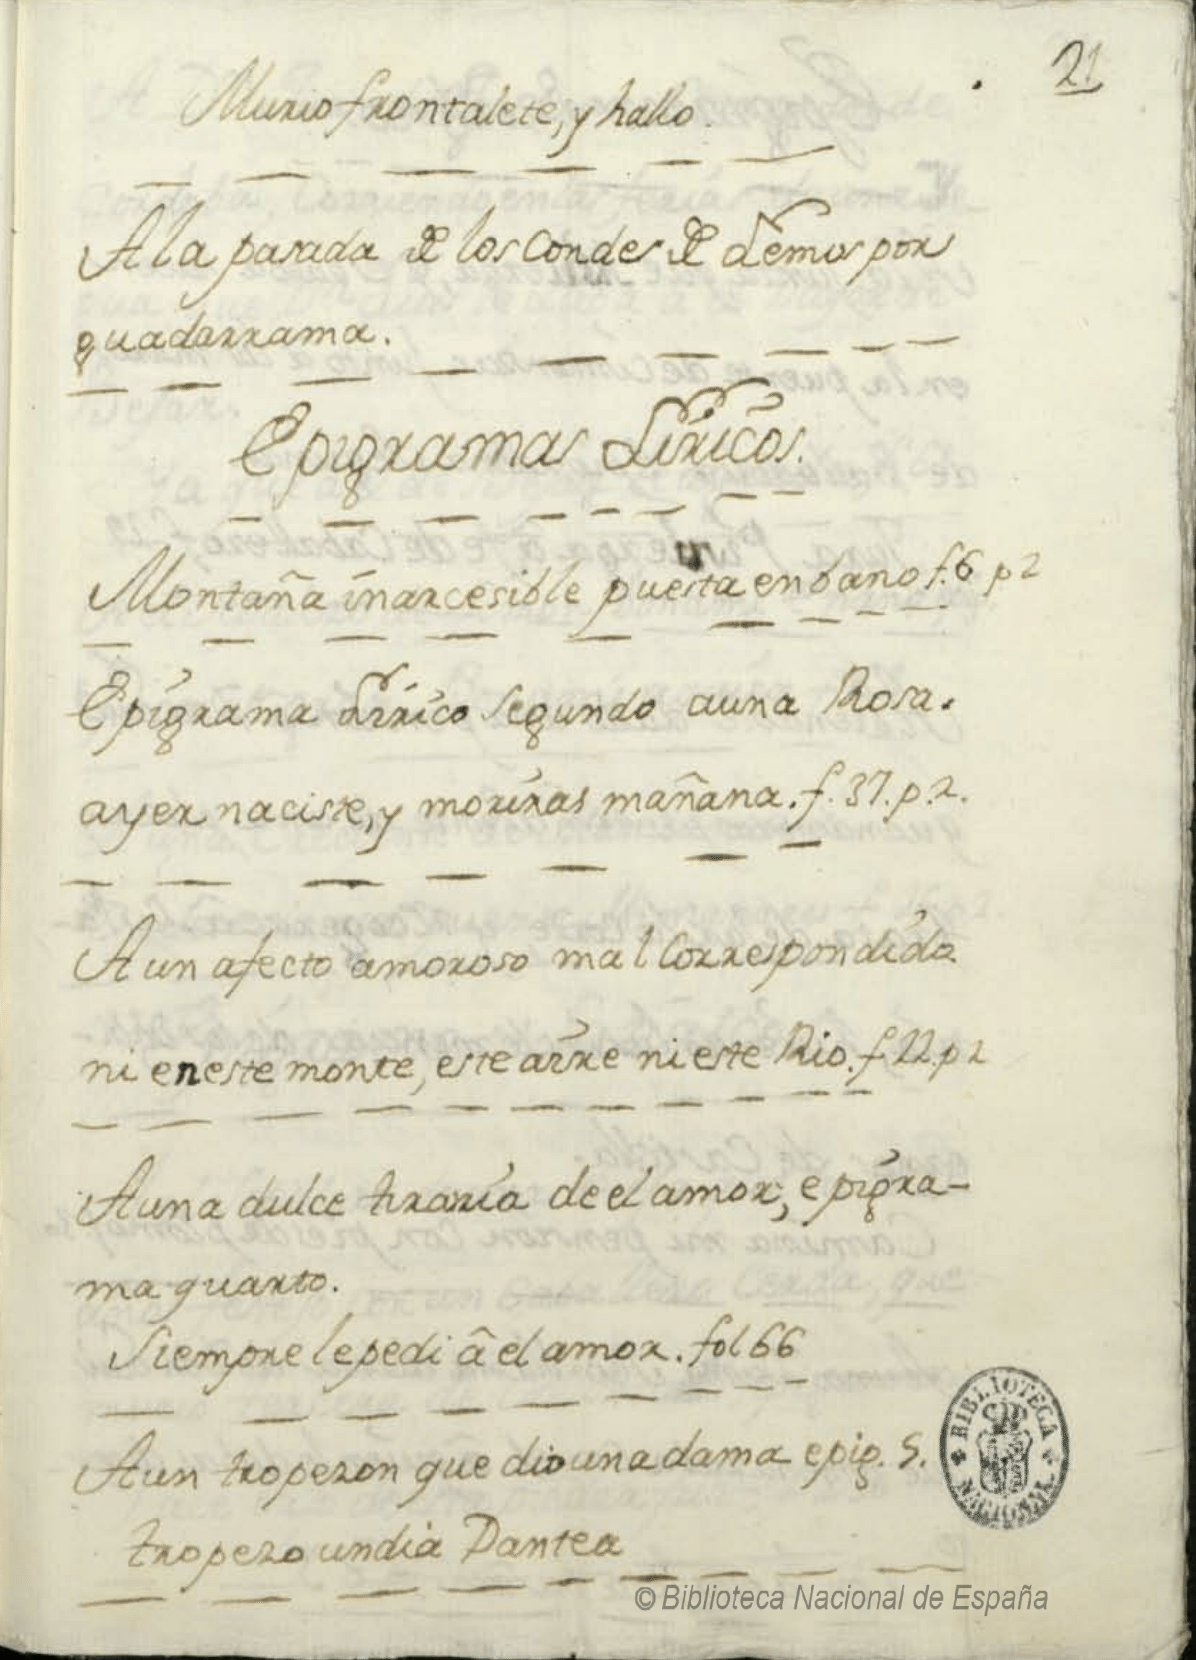 21
Murio frontalete, y hallo.
A la pasada de los Condes de Lemos por
guadarrama.
Epigramas Liricos.
Montaña inarcesible puesta en bano f. 6 p 2
Epigrama Lirico segundo a una Rosa.
ayer naciste, y moriras mañana. f. 37. p. 2.
A un afecto amoroso mal Correspondido
ni en este monte, este aire ni este Rio. f 22. p 2
A una dulce tirania de el amor, epigra-
ma quarto.
Siempre le pedi â el amor. fol 66
A un tropezon que dio una dama epig. 5.
tropezo un dia Dantea
BIBLIOTECA NACIONAL
© Biblioteca Nacional de España